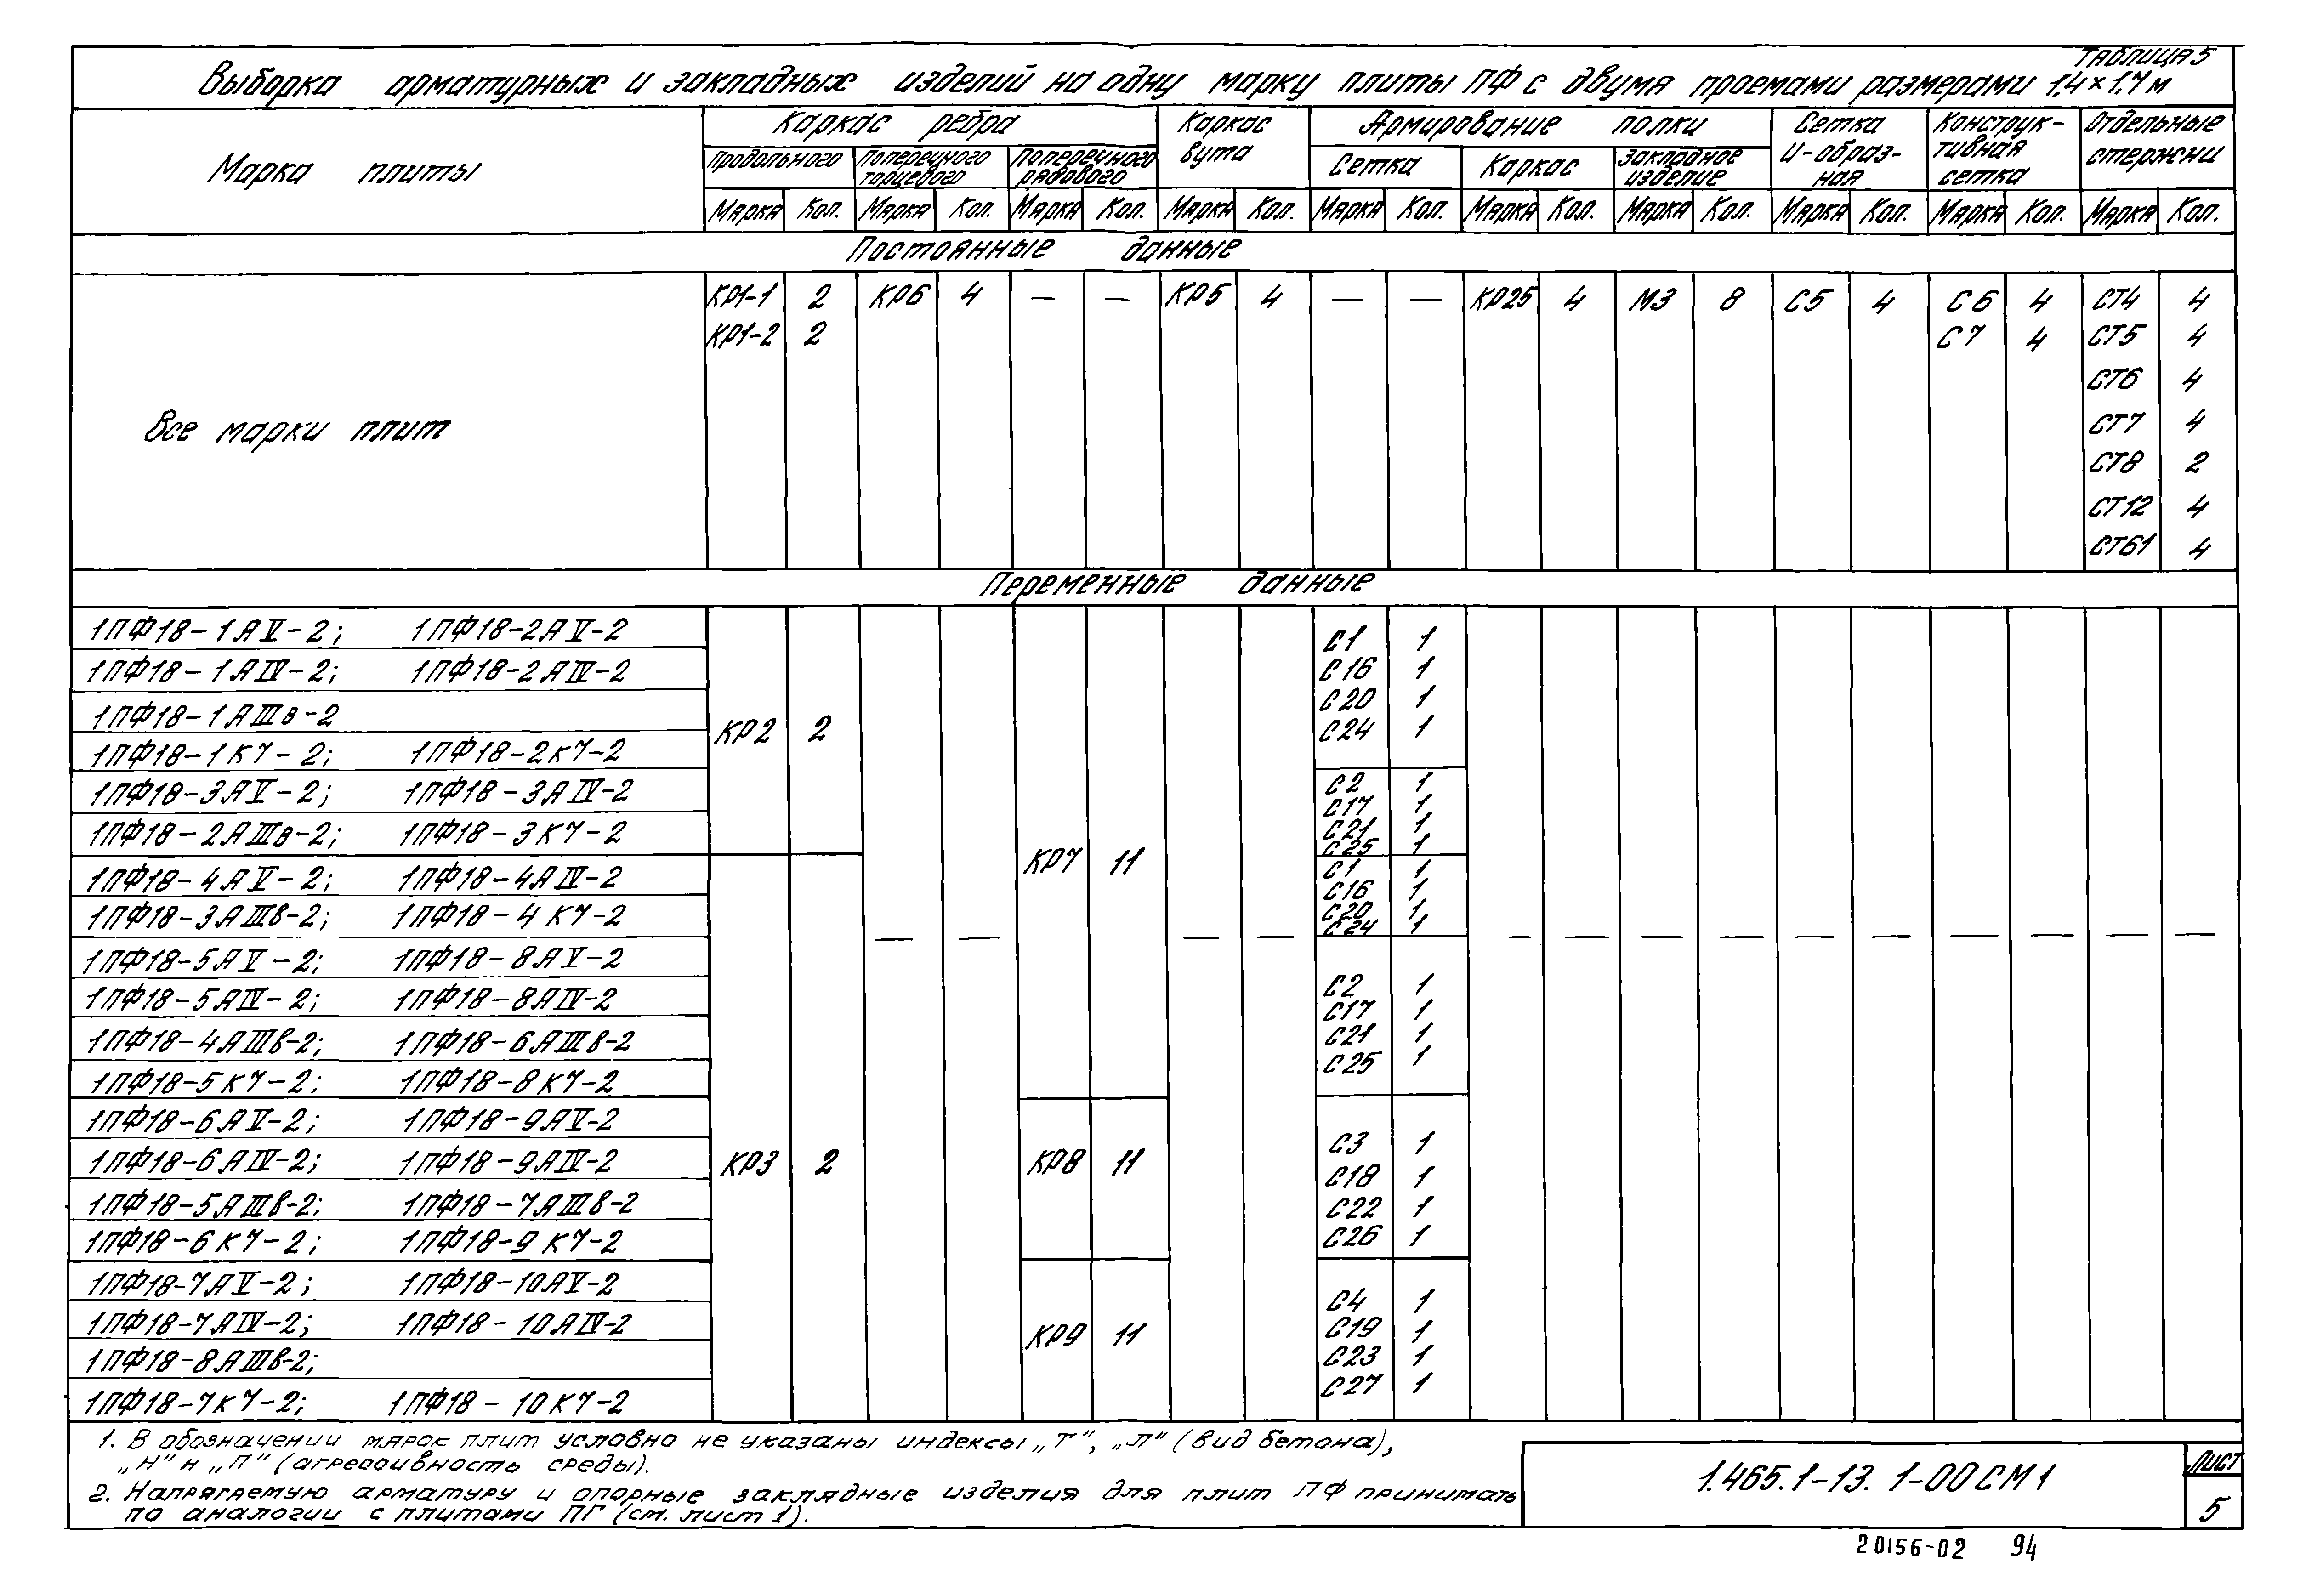 Таблица 5
Выборка арматурных и закладных изделий на одну марку плиты ПФ с двумя проемами размерами 1,4×1,7 м
Марка плиты
Каркас ребра
Каркас вута
Армирование полки
Сетка И-образ-ная
Конструк-тивная сетка
Отдельные стержни
продольного
поперечного торцевого
поперечного рядового
Сетка
Каркас
Закладное изделие
Марка Кол. Марка Кол. Марка Кол. Марка Кол. Марка Кол. Марка Кол. Марка Кол. Марка Кол. Марка Кол. Марка Кол.
Постоянные данные
Все марки плит
КР1-1 2 КР6 4 — — КР5 4 — — КР25 4 М3 8 С5 4 С6 4 СТ4 4
КР1-2 2 С7 4 СТ5 4
СТ6 4
СТ7 4
СТ8 2
СТ12 4
СТ61 4
Переменные данные
1ПФ18-1АV-2; 1ПФ18-2АV-2
1ПФ18-1АIV-2; 1ПФ18-2АIV-2
1ПФ18-1АIIIв-2
1ПФ18-1К7-2; 1ПФ18-2К7-2
1ПФ18-3АV-2; 1ПФ18-3АIV-2
1ПФ18-2АIIIв-2; 1ПФ18-3К7-2
1ПФ18-4АV-2; 1ПФ18-4АIV-2
1ПФ18-3АIIIв-2; 1ПФ18-4К7-2
1ПФ18-5АV-2; 1ПФ18-8АV-2
1ПФ18-5АIV-2; 1ПФ18-8АIV-2
1ПФ18-4АIIIв-2; 1ПФ18-6АIIIв-2
1ПФ18-5К7-2; 1ПФ18-8К7-2
1ПФ18-6АV-2; 1ПФ18-9АV-2
1ПФ18-6АIV-2; 1ПФ18-9АIV-2
1ПФ18-5АIIIв-2; 1ПФ18-7АIIIв-2
1ПФ18-6К7-2; 1ПФ18-9К7-2
1ПФ18-7АV-2; 1ПФ18-10АV-2
1ПФ18-7АIV-2; 1ПФ18-10АIV-2
1ПФ18-8АIIIв-2;
1ПФ18-7К7-2; 1ПФ18-10К7-2
КР2 2
КР3 2
— —
КР7 11
КР8 11
КР9 11
— —
С1 1
С16 1
С20 1
С24 1
С2 1
С17 1
С21 1
С25 1
С1 1
С16 1
С20 1
С24 1
С2 1
С17 1
С21 1
С25 1
С3 1
С18 1
С22 1
С26 1
С4 1
С19 1
С23 1
С27 1
— — — — — — — — — —
1. В обозначении марок плит условно не указаны индексы „Т", „Л" (вид бетона),
„Н" и „П" (агрессивность среды).
2. Напрягаемую арматуру и опорные закладные изделия для плит ПФ принимать
по аналогии с плитами ПГ (см. лист 1).
1.465.1-13. 1-00СМ1
Лист
5
20156-02 94